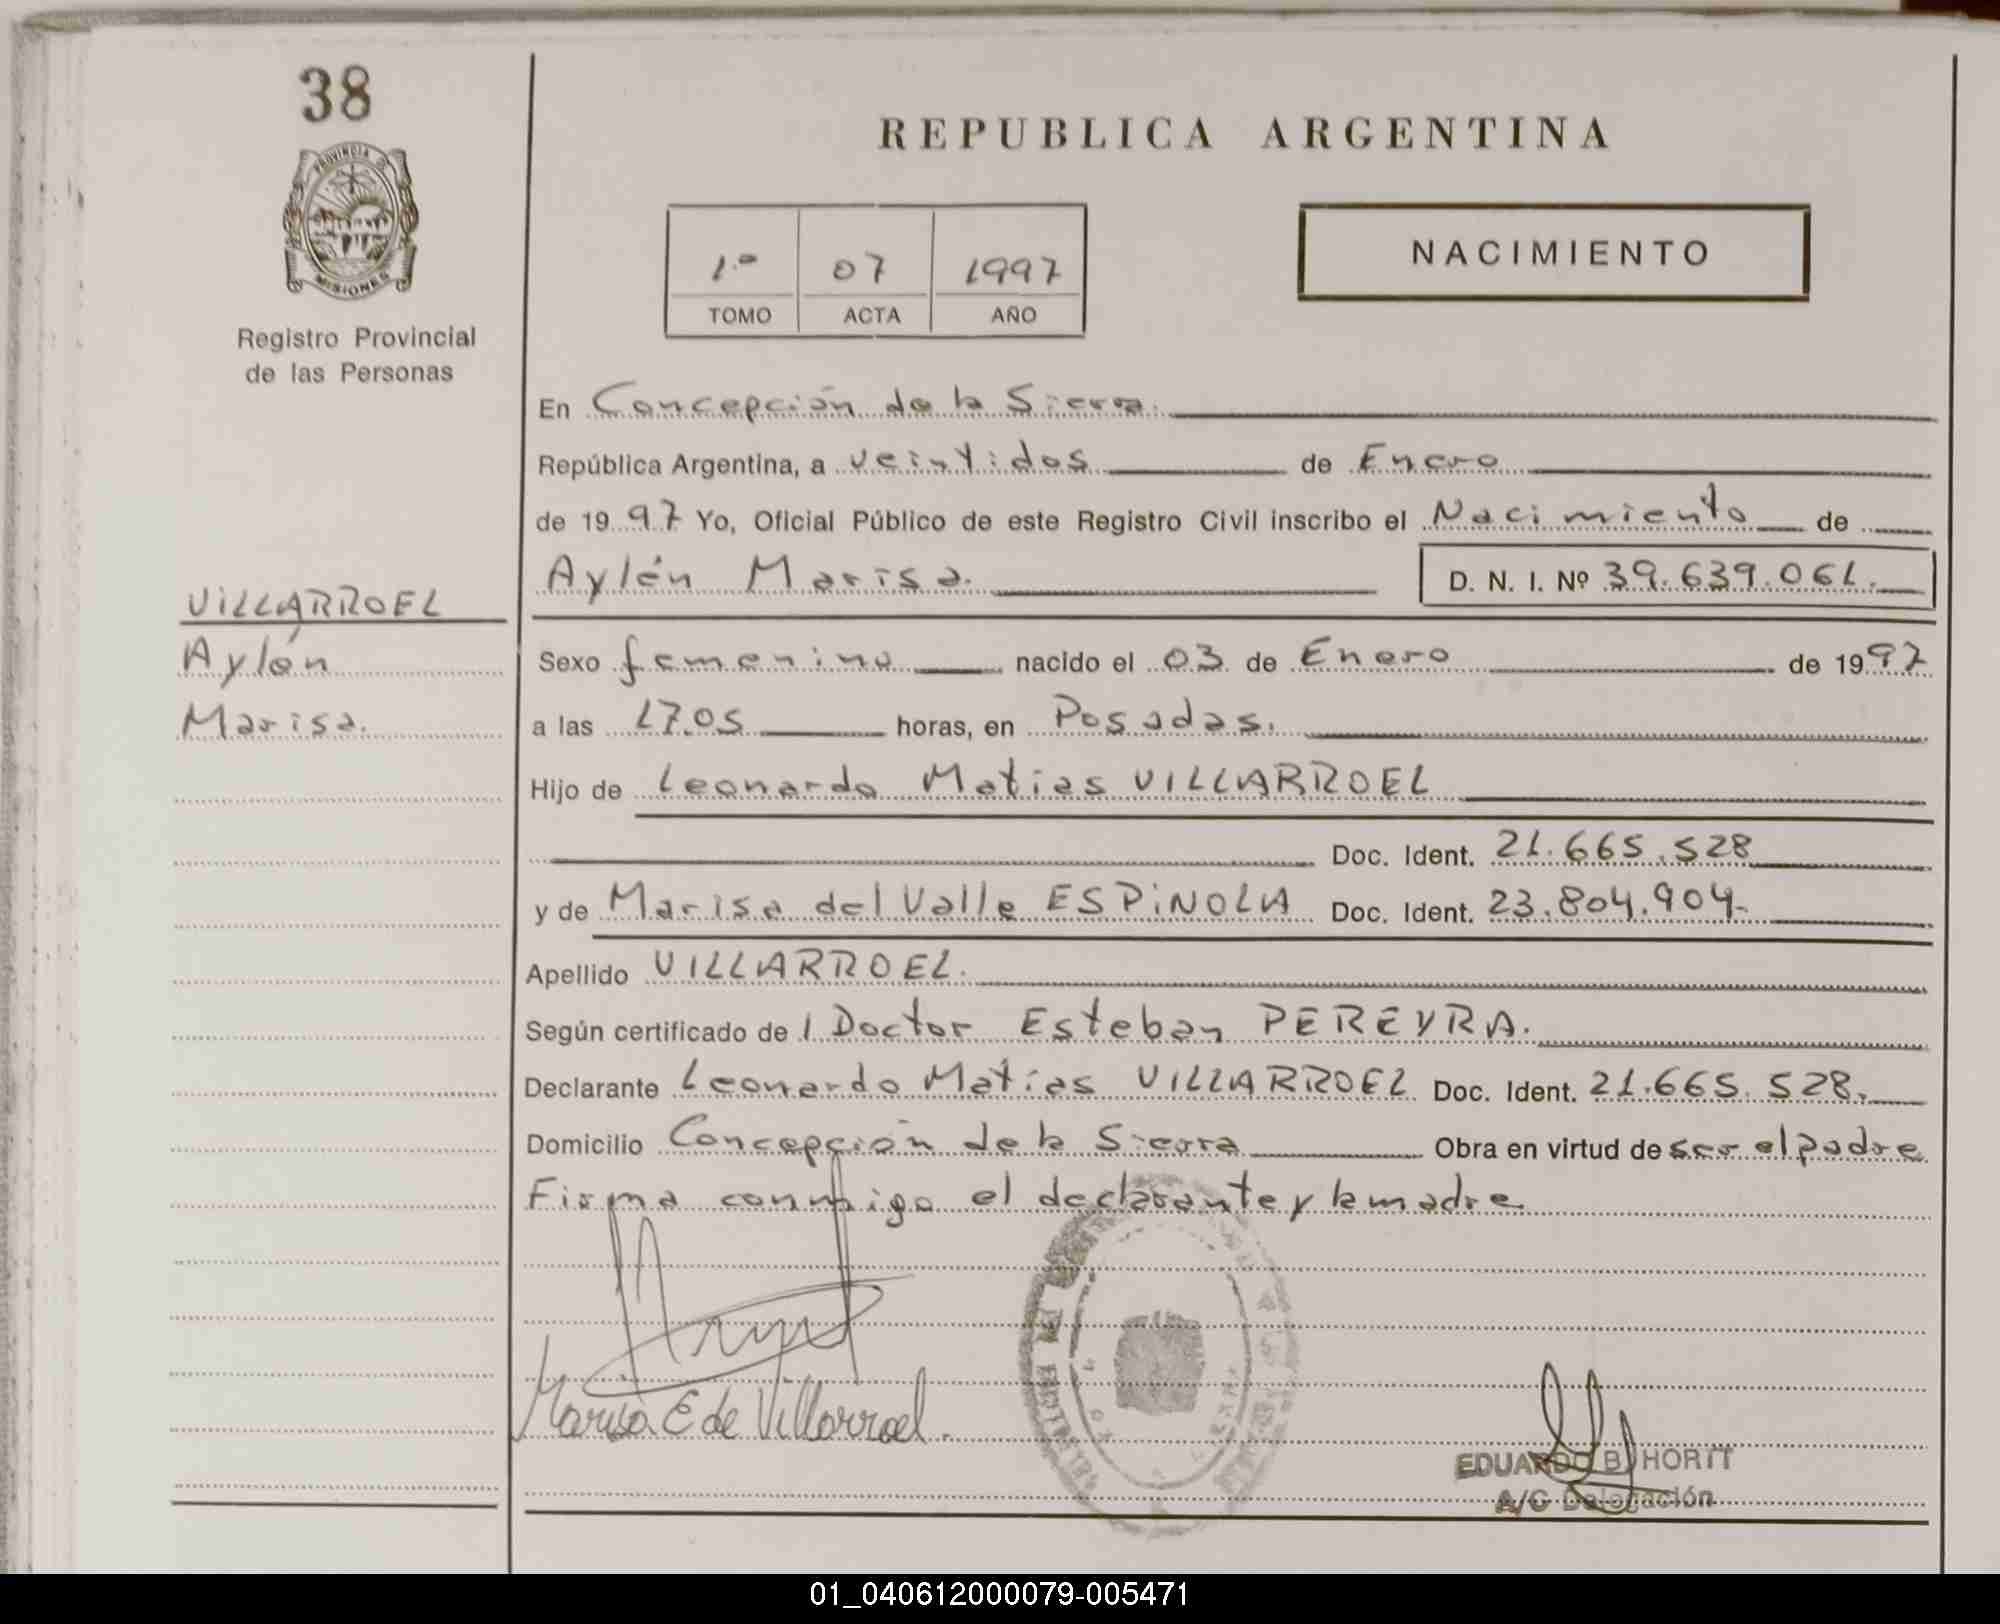 38
PROVINCIA DE
MISIONES
Registro Provincial
de las Personas
REPUBLICA ARGENTINA
1.º 07 1997
TOMO ACTA AÑO
NACIMIENTO
En Concepción de la Sierra.
República Argentina, a veintidos de Enero
de 1997 Yo, Oficial Público de este Registro Civil inscribo el Nacimiento de
Aylén Marisa. D. N. I. Nº 39.639.061.
VILLARROEL
Aylén
Marisa.
Sexo femenino nacido el 03 de Enero de 1997
a las 17.05 horas, en Posadas.
Hijo de Leonardo Matias VILLARROEL
Doc. Ident. 21.665.528
y de Marisa del Valle ESPINOLA Doc. Ident. 23.804.904.
Apellido VILLARROEL.
Según certificado de l Doctor Esteban PEREYRA.
Declarante Leonardo Matias VILLARROEL Doc. Ident. 21.665.528.
Domicilio Concepción de la Sierra Obra en virtud de ser el padre
Firma conmigo el declarante y la madre
Marisa E de Villarroel.
EDUARDO B. HORTT
A/C Delegación
01_040612000079-005471